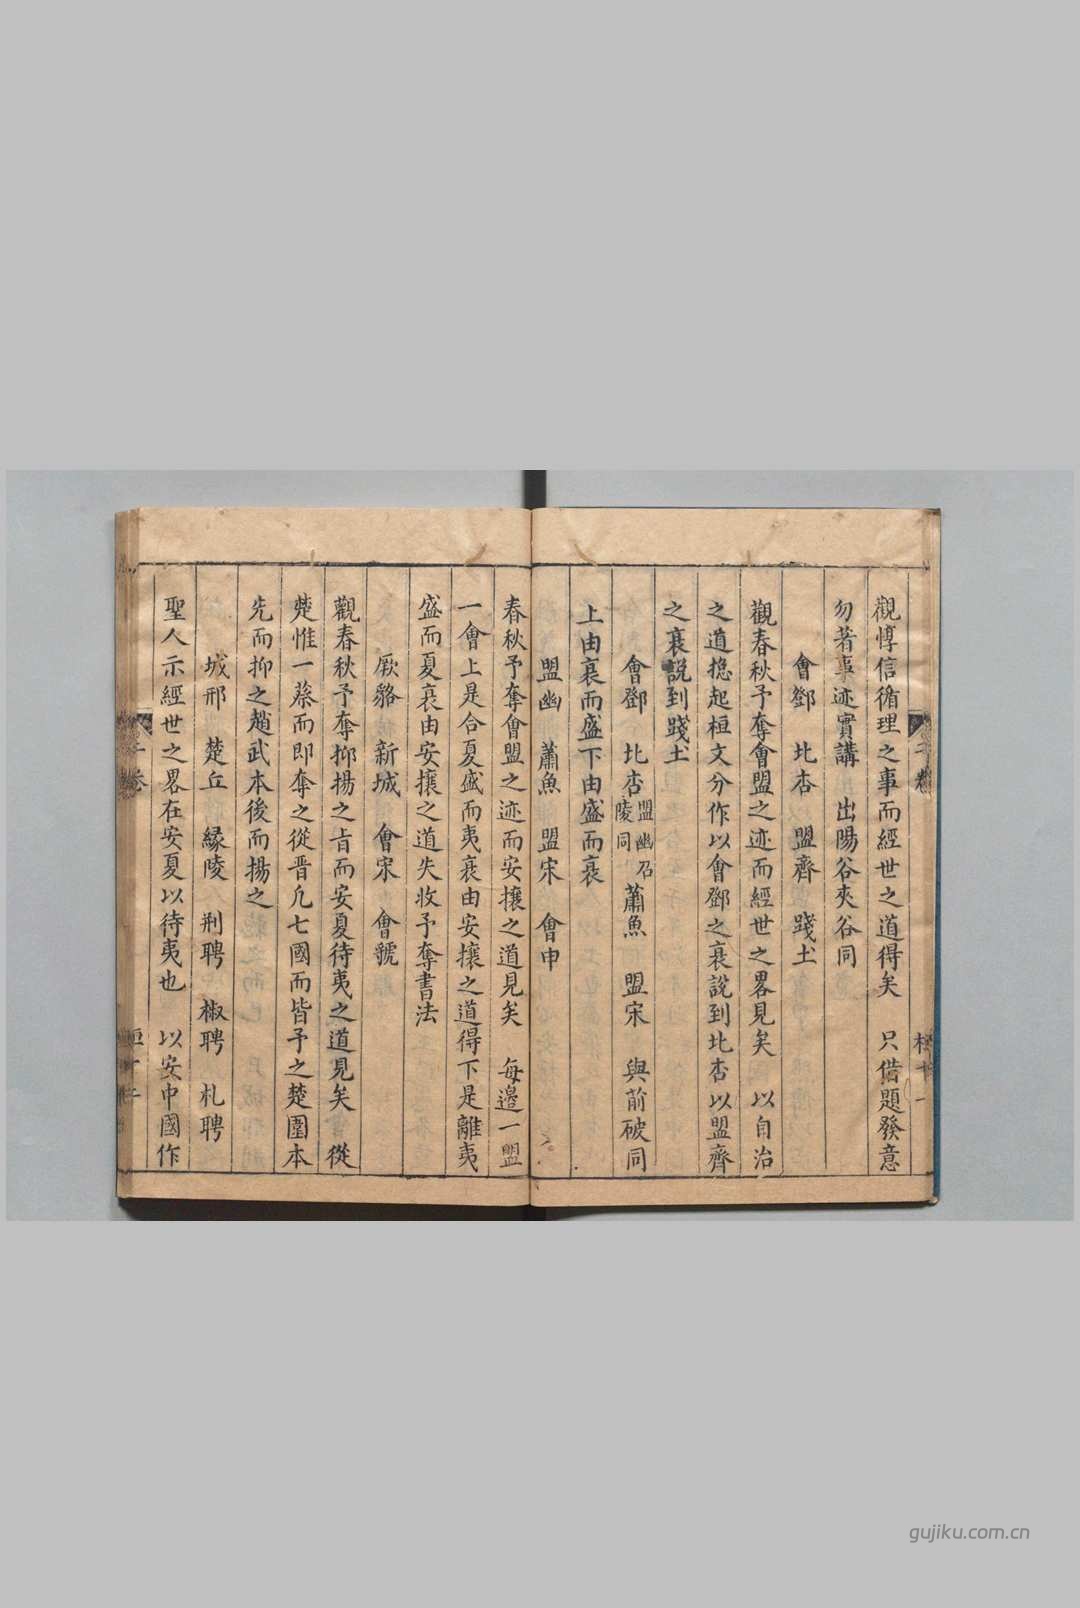 觀惇信循理之事而經世之道得矣　只借題發意
勿著事迹實講　出陽谷夾谷同
會鄧　北杏　盟齊　踐土
觀春秋予奪會盟之迹而經世之畧見矣　以自治
之道揔起桓文分作以會鄧之衰說到北杏以盟齊
之衰說到踐土
會鄧　北杏盟幽召陵同　蕭魚　盟宋　與前破同
上由衰而盛下由盛而衰
盟幽　蕭魚　盟宋　會申
春秋予奪會盟之迹而安攘之道見矣　每邉一盟
一會上是合夏盛而夷衰由安攘之道得下是離夷
盛而夏衰由安攘之道失收予奪書法
厥貉　新城　會宋　會虢
觀春秋予奪抑揚之㫖而安夏待夷之道見矣　從
楚惟一蔡而即奪之從晉凢七國而皆予之楚圍本
先而抑之趙武本後而揚之
城邢　楚丘　縁陵　荆聘　椒聘　札聘
聖人示經世之畧在安夏以待夷也　以安中國作
gujiku.com.cn